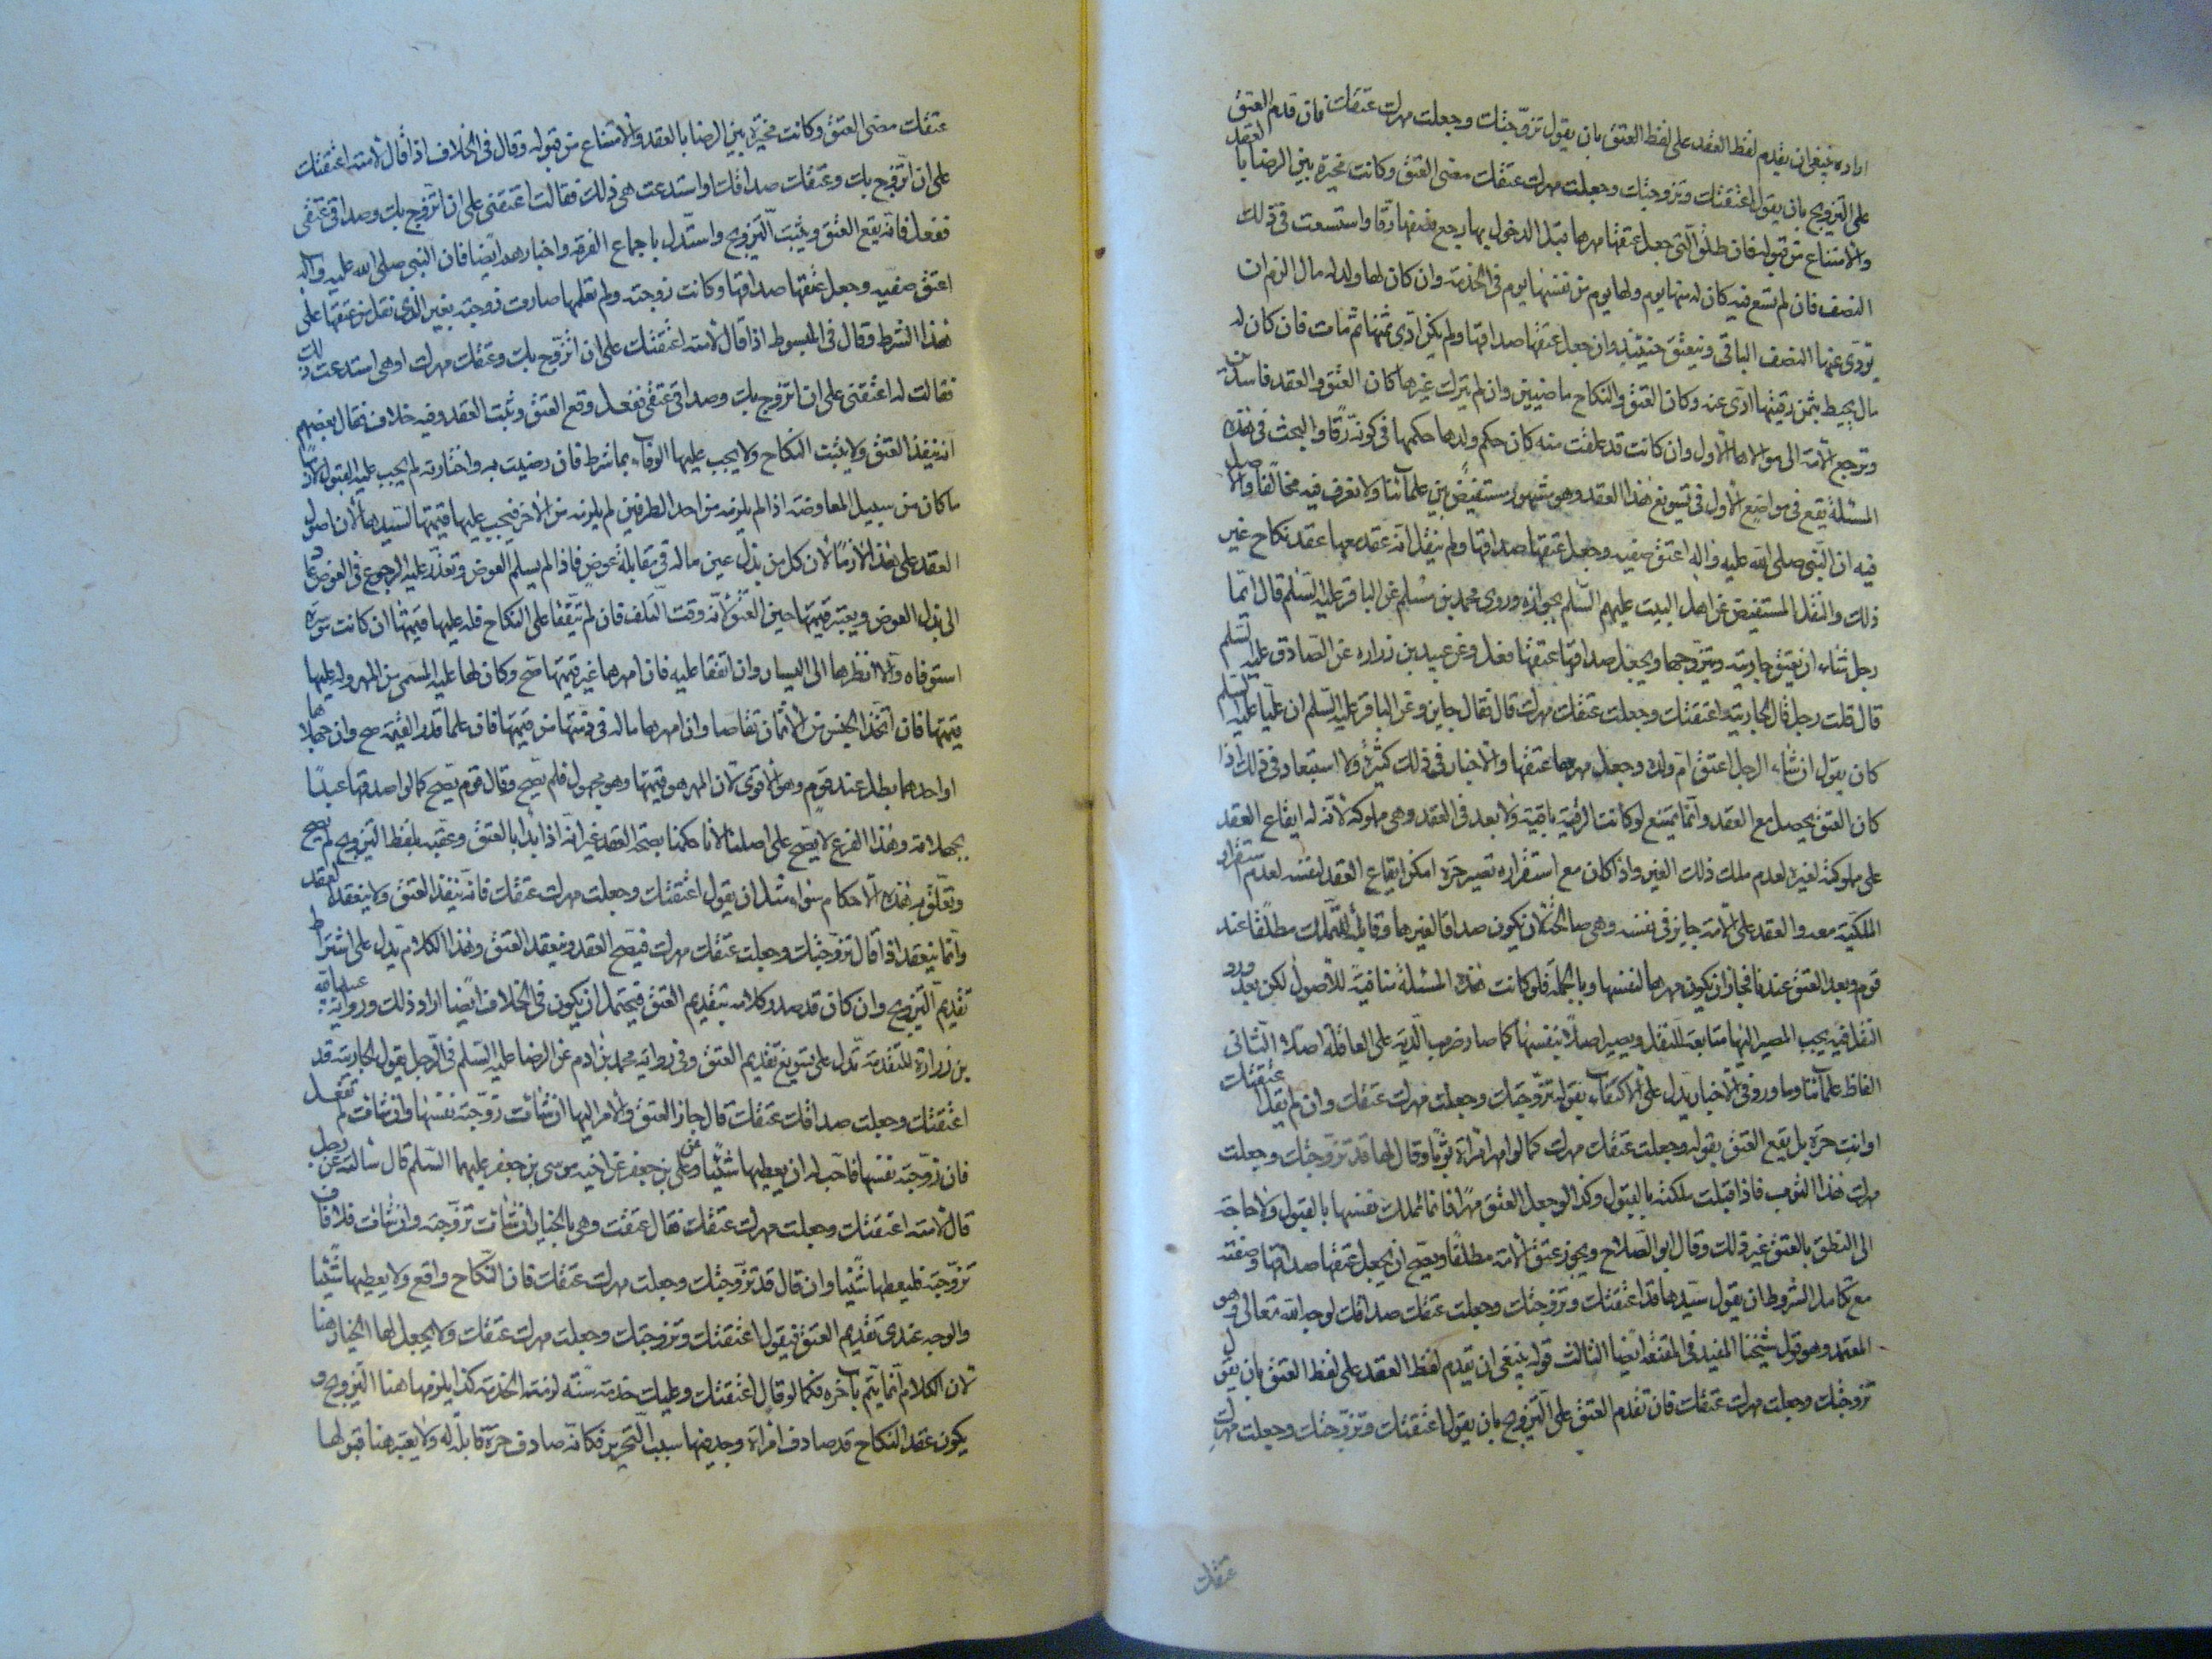 اراده ينبغي ان يقدم لفظ العقد على لفظ العتق بان يقول تزوّجتك وجعلت مهرك عتقك فان قدم العتق
على التزويج بان يقول اعتقتك وتزوجتك وجعلت مهرك عتقك مضى العتق وكانت مخيرة بين الرضا بالعقد
والامتناع من قبوله فان طلق التي جعل عتقها مهرها قبل الدخول بها رجع نصفها رقا واستسعت في ذلك
النصف فان لم تسع فيه كان له منها يوم ولها يوم من نفسها يوم في الخدمة وان كان لها ولد له مال الزم ان
يؤدي عنها النصف الباقي وينعتق حينئذ وان جعل عتقها صداقها ولم يكن ادى ثمنها ثم مات فان كان له
مال يحيط بثمن رقبتها ادى عنه وكان العتق والنكاح ماضيين وان لم يترك غيرها كان العتق والعقد فاسدين
وترجع الامة الى مولاها الاول وان كانت قد علقت منه كان حكم ولدها حكمها في كونه رقا والبحث في هذه
المسئلة يقع في مواضع الاول في تسويغ هذا العقد وهو مشهور مستفيض بين علمائنا ولا نعرف فيه مخالفا والاصل
فيه ان النبي صلى الله عليه واله اعتق صفيه وجعل عتقها صداقها ولم ينقل انه عقد معها عقد نكاح غير
ذلك والنقل المستفيض عن اهل البيت عليهم السلم بجوازه وروى محمد بن مسلم عن الباقر عليه السلم قال ايما
رجل شاء ان يعتق جاريته ويتزوجها ويجعل صداقها عتقها فعل وعن عبيد بن زراره عن الصادق عليه السلم
قال قلت رجل قال لجاريته اعتقتك وجعلت عتقك مهرك قال فقال جايز وعن الباقر عليه السلم ان عليا عليه السلم
كان يقول ان شاء الرجل اعتق ام ولده وجعل مهرها عتقها والاخبار في ذلك كثيرة ولا استبعاد في ذلك اذا
كان العتق يحصل مع العقد وانما يمتنع لو كانت الرقية باقية ولا بعد في العقد وهي مملوكه لانه له ايقاع العقد
على مملوكته لغيره لعدم ملك ذلك الغير واذا كان مع استقراره تصير حرة امكن ايقاع العقد لنفسه لعدم استقرار
الملكية معه والعقد على الامة جايز في نفسه وهي صالحة لان يكون صداقا لغيرها وقابلة للتملك مطلقا عند
قوم وبعد العتق عندنا فجاز ان يكون مهرها لنفسها وبالجملة فلو كانت هذه المسئلة منافية للاصول لكن بعد ورود
النقل فيه يجب المصير اليها متابعة للنقل ويصير اصلا بنفسها كما صار ضرب الدية على العاقلة اصلا الثاني
الفاظ علمائنا وما ورد في الاخبار يدل على الاكتفاء بقوله تزوّجتك وجعلت مهرك عتقك وان لم يقل اعتقتك
او انت حرة بل يقع العتق بقوله وجعلت عتقك مهرك كما لو امهر امرأة ثوبا وقال لها قد تزوّجتك وجعلت
مهرك هذا الثوب فاذا قبلت ملكته بالقبول وكذا لو جعل العتق مهرا فانما تملك نفسها بالقبول ولا حاجة
الى النطق بالعتق غير ذلك وقال ابو الصلاح ويجوز عتق الامة مطلقا ويصح ان يجعل عتقها صداقها وصفته
مع تكامل الشروط ان يقول سيدها قد اعتقتك وتزوجتك وجعلت عتقك صداقك لوجه الله تعالى وهو
المعتمد وهو قول شيخنا المفيد في المقنعه ايضا الثالث قوله ينبغي ان يقدم لفظ العقد على لفظ العتق بان يقول
تزوجتك وجعلت مهرك عتقك فان تقدم العتق على التزويج بان يقول اعتقتك وتزوّجتك وجعلت مهرك
عتقك
عتقك مضى العتق وكانت مخيّرة بين الرضا بالعقد والامتناع من قبوله وقال في الخلاف اذا قال لامته اعتقتك
على ان اتزوج بك وعتقك صداقك او استدعت هي ذلك فقالت اعتقني على ان اتزوج بك وصداقي عتقي
ففعل فانه يقع العتق ويثبت التزويج واستدل باجماع الفرقة واخبارهم وايضا فان النبي صلى الله عليه واله
اعتق صفيه وجعل عتقها صداقها وكانت زوجته ولم نعلمها صارت زوجته بغير الذي نقل من عتقها على
هذا الشرط وقال في المبسوط اذا قال لامته اعتقتك على ان اتزوّج بك وعتقك مهرك او هي استدعت ذلك
فقالت له اعتقني على ان اتزوج بك وصداقي عتقي ففعل وقع العتق وثبت العقد وفيه خلاف فقال بعضهم
انه ينفذ العتق ولا يثبت النكاح ولا يجب عليها الوفاء بما شرط فان رضيت به واختارته لم يجب عليه القبول لان
ما كان من سبيل المعاوضة اذا لم يلزمه من احد الطرفين لم يلزمه من الاخر فيجب عليها قيمتها لسيدها لان اصول
العقد على هذا لازما لان كل من بذل عين ماله في مقابلة عوض فاذا لم يسلم العوض وتعذّر عليه الرجوع في العوض عاد
الى بذل العوض ويعتبر قيمتها حين العتق لانه وقت التلف فان لم يتفقا على النكاح فله عليها قيمتها ان كانت موسره
استوفاه والا انظرها الى اليسار وان اتفقا عليه فان امهرها غير قيمتها صح وكان لها عليه المسمى من المهر وله عليها
قيمتها فان اتحد الجنس من الاثمان تقاصا وان امهرها ماله في ذمتها من قيمتها فان علما قدر القيمة صح وان جهلاها
او احدهما بطل عند قوم وهو الاقوى لان المهر هو قيمتها وهو مجهول فلم يصح وقال قوم يصح كما لو اصدقها عبدا
يجهلانه وهذا الفرع لا يصح على اصلنا لانا حكمنا بصحة العقد غير انه اذا بدا بالعتق وعقبه بلفظ التزويج لم يصح
وتعلق به هذه الاحكام سواء مثل ان يقول اعتقتك وجعلت مهرك عتقك فانه ينفذ العتق ولا ينعقد العقد
وانما ينعقد اذا قال تزوّجتك وجعلت عتقك مهرك فيصح العقد وينعقد العتق وهذا الكلام يدل على اشتراط
تقديم التزويج وان كان قد صدر كلامه بتقديم العتق فيحتمل ان يكون في الخلاف ايضا اراد ذلك ورواية عبيد الله
بن زرارة المتقدمة تدل على تسويغ تقديم العتق وفي رواية محمد بن ادم عن الرضا عليه السلم في الرجل يقول لجاريته قد
اعتقتك وجعلت صداقك عتقك قال جاز العتق والامر اليها ان شائت زوّجته نفسها وان شائت لم تفعل
فان زوّجته نفسها فاحب له ان يعطيها شيئا وعن علي بن جعفر عن اخيه موسى بن جعفر عليهما السلم قال سألته عن رجل
قال لامته اعتقتك وجعلت مهرك عتقك فقال عتقت وهي بالخيار ان شائت تزوّجته وان شائت فلا فان
تزوّجته فليعطها شيئا وان قال قد تزوّجتك وجعلت مهرك عتقك فان النكاح واقع ولا يعطيها شيئا
والوجه عندي تقديم العتق فيقول اعتقتك وتزوجتك وجعلت مهرك عتقك ولا يجعل لها الخيار هنا
لان الكلام انما يتم بآخره فكما لو قال اعتقتك وعليك خدمة سنة لزمته الخدمة كذا يلزمها هنا التزويج و
يكون عقد النكاح قد صادف امرأة وجد فيها سبب التحرير فكانه صادف حرة قابلة له ولا يعتبر هنا قبولها